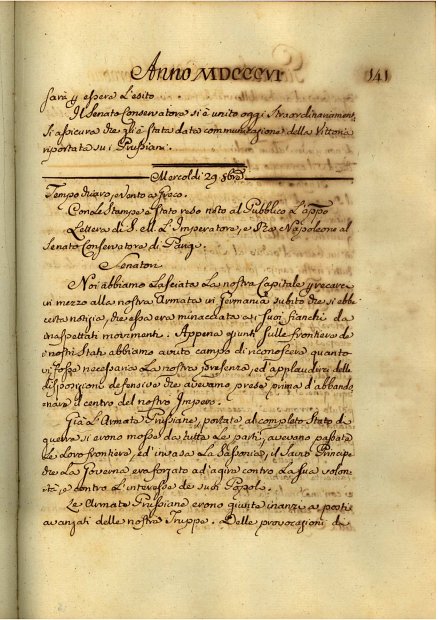 Anno MDCCCVI 141
sarà per essere l'esito
Il Senato Conservatore si è unito oggi straordinariament.
Si assicura che gli è stata data communicazione della Vittoria
riportata sui Prussiani.
Mercoldi 29. 8bre
Tempo chiaro, e vento a Greco.
Con le Stampe è stato reso noto al Pubblico l'app.o
Lettera di S. M. L'Imperatore, e Re Napoleone al
Senato Conservatore di Parigi.
Senatori
Noi abbiamo lasciata la nostra Capitale per recarci
in mezzo alla nostra Armata in Germania subito che si ebbe
certa notizia, che essa era minacciata ai suoi fianchi da
inaspettati movimenti. Appena giunti sulle frontiere de
nostri Stati abbiamo avuto campo di riconoscere quanto
vi fosse necessaria la nostra presenza, ed applaudirci delle
disposizioni defensive che avevamo prese prima d'abbando
nare il centro del nostro Impero.
Già l'Armate Prussiane, portate al completo Stato di
guerra si erono mosse da tutte le parti, avevano passate
le loro frontiere, ed invasa la Sassonia, il Savio Principe
che la Governa era forzato ad'agire contro la sua volon
tà, e contro l'interesse de suoi Popoli.
Le Armate Prussiane erono giunte inanzi ai posti
avanzati delle nostre Truppe. Delle provocazioni di